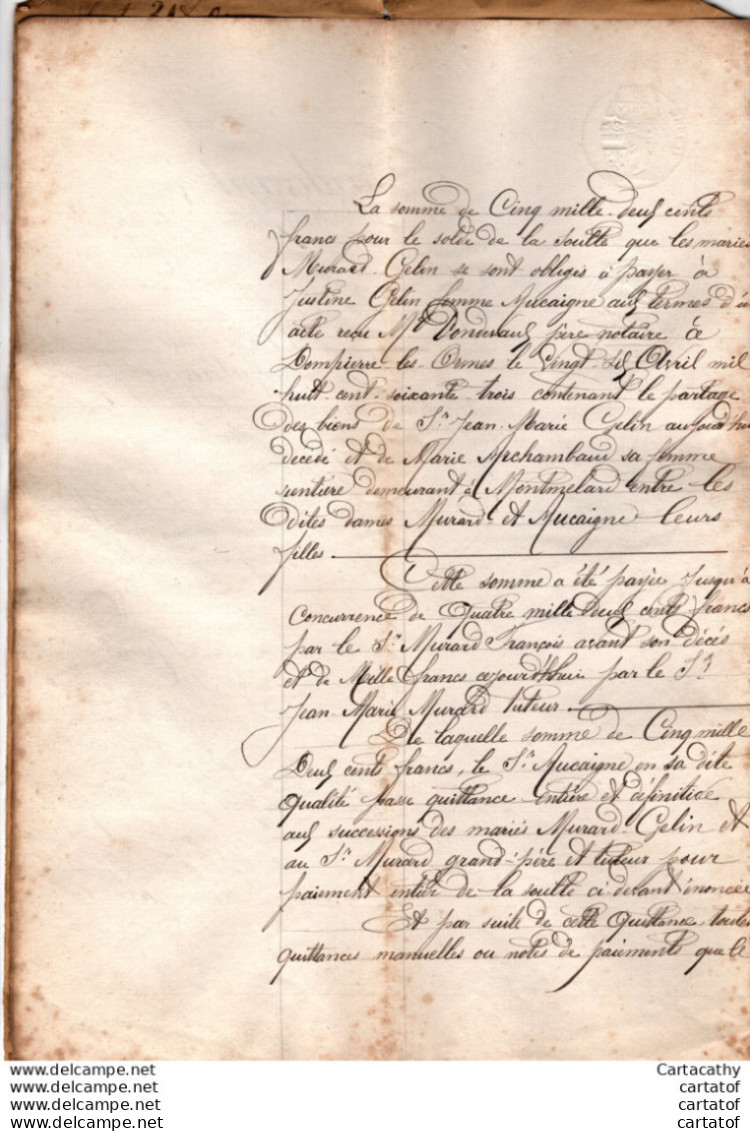 La somme de Cinq mille deux cents
francs pour le solde de la soulte que les mariés
Murard Gelin se sont obligés à payer à
Justine Gelin femme Mucaigne aux termes d'u
acte reçu Me père notaire à
Dompierre-les-Ormes le vingt-six Avril mil
huit cent soixante trois contenant le partage
des biens de Sr Jean-Marie Gelin aujourd'hui
décédé et de Marie Archambaud sa femme
rentière demeurant à Montmelard entre les
dites dames Murard et Mucaigne leurs
filles
Cette somme a été payée jusqu'à
concurrence de Quatre mille deux cents francs
par le Sr Murard François avant son décès
et de Mille francs cejourd'hui par le Sr
Jean Marie Murard tuteur
De laquelle somme de Cinq mille
Deux cents francs, le Sr Mucaigne en sa dite
qualité passe quittance entière et définitive
aux successions des mariés Murard-Gelin et
au Sr Murard grand-père et tuteur pour
paiement entier de la soulte ci-devant énoncée
Et par suite de cette Quittance, toutes
quittances manuelles ou notes de paiements que le
www.delcampe.net
www.delcampe.net
www.delcampe.net
www.delcampe.net
Cartacathy
cartatof
cartatof
cartatof